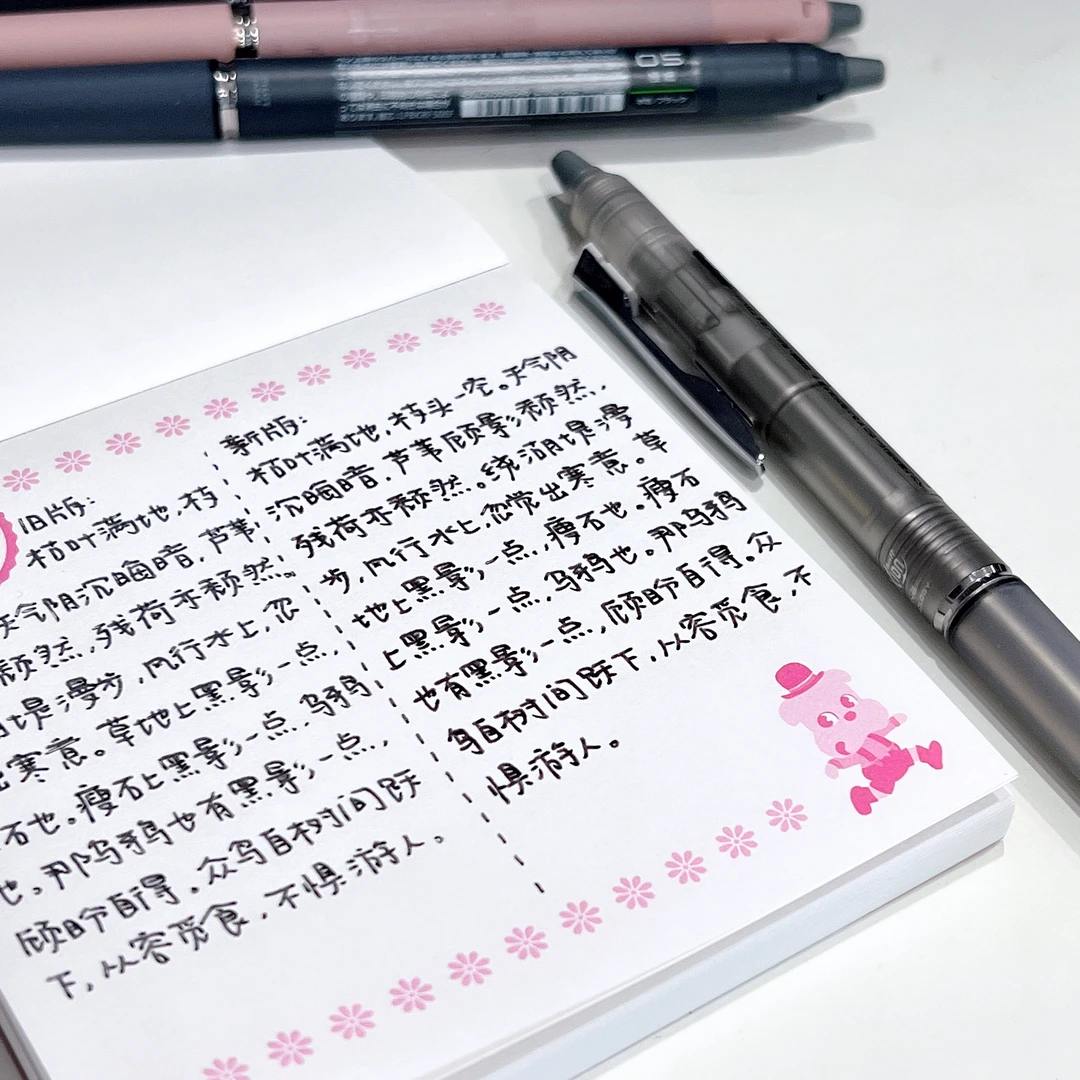 05
ブラック
旧版:
枯叶满地,枝
天气阴沉晦暗,芦苇
颓然,残荷亦颓然。
堤漫步,风行水上,忽
出寒意。草地上黑影一点,
石也。瘦石上黑影一点,乌鸦
也。那乌鸦也有黑影一点,
顾盼自得。众鸟自树间跃
下,从容觅食,不惧游人。
新版:
枯叶满地,枝头一空。天气阴
沉晦暗,芦苇顾影颓然,
残荷亦颓然。绕湖堤漫
步,风行水上,忽觉出寒意。草
地上黑影一点,瘦石也。瘦石
上黑影一点,乌鸦也。那乌鸦
也有黑影一点,顾盼自得。众
鸟自树间跃下,从容觅食,不
惧游人。